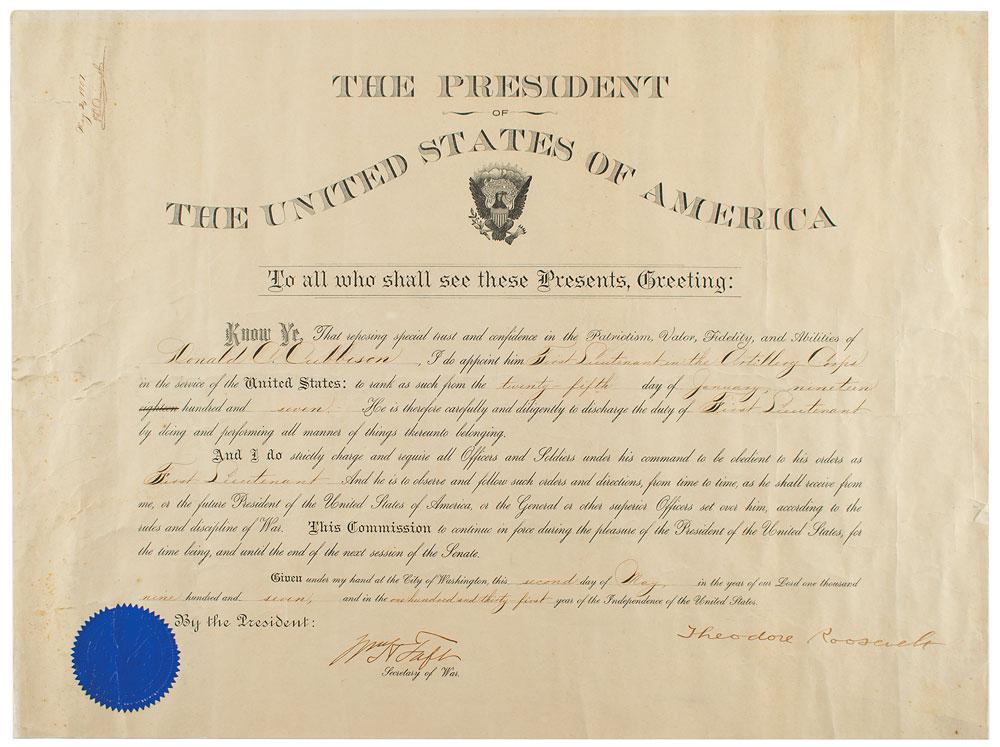 THE PRESIDENT
OF
THE UNITED STATES OF AMERICA
To all who shall see these Presents, Greeting:
Know Ye, That reposing special trust and confidence in the Patriotism, Valor, Fidelity, and Abilities of
Donald C. Cullison, I do appoint him First Lieutenant in the Artillery Corps
in the service of the United States: to rank as such from the twenty-fifth day of January, nineteen
eighteen hundred and seven. He is therefore carefully and diligently to discharge the duty of First Lieutenant
by doing and performing all manner of things thereunto belonging.
And I do strictly charge and require all Officers and Soldiers under his command to be obedient to his orders as
First Lieutenant. And he is to observe and follow such orders and directions, from time to time, as he shall receive from
me, or the future President of the United States of America, or the General or other superior Officers set over him, according to the
rules and discipline of War. This Commission to continue in force during the pleasure of the President of the United States, for
the time being, and until the end of the next session of the Senate.
Given under my hand at the City of Washington, this second day of May, in the year of our Lord one thousand
nine hundred and seven, and in the one hundred and thirty-first year of the Independence of the United States.
By the President:
Theodore Roosevelt
Wm H Taft
Secretary of War.